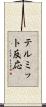 テルミッ
ト反応